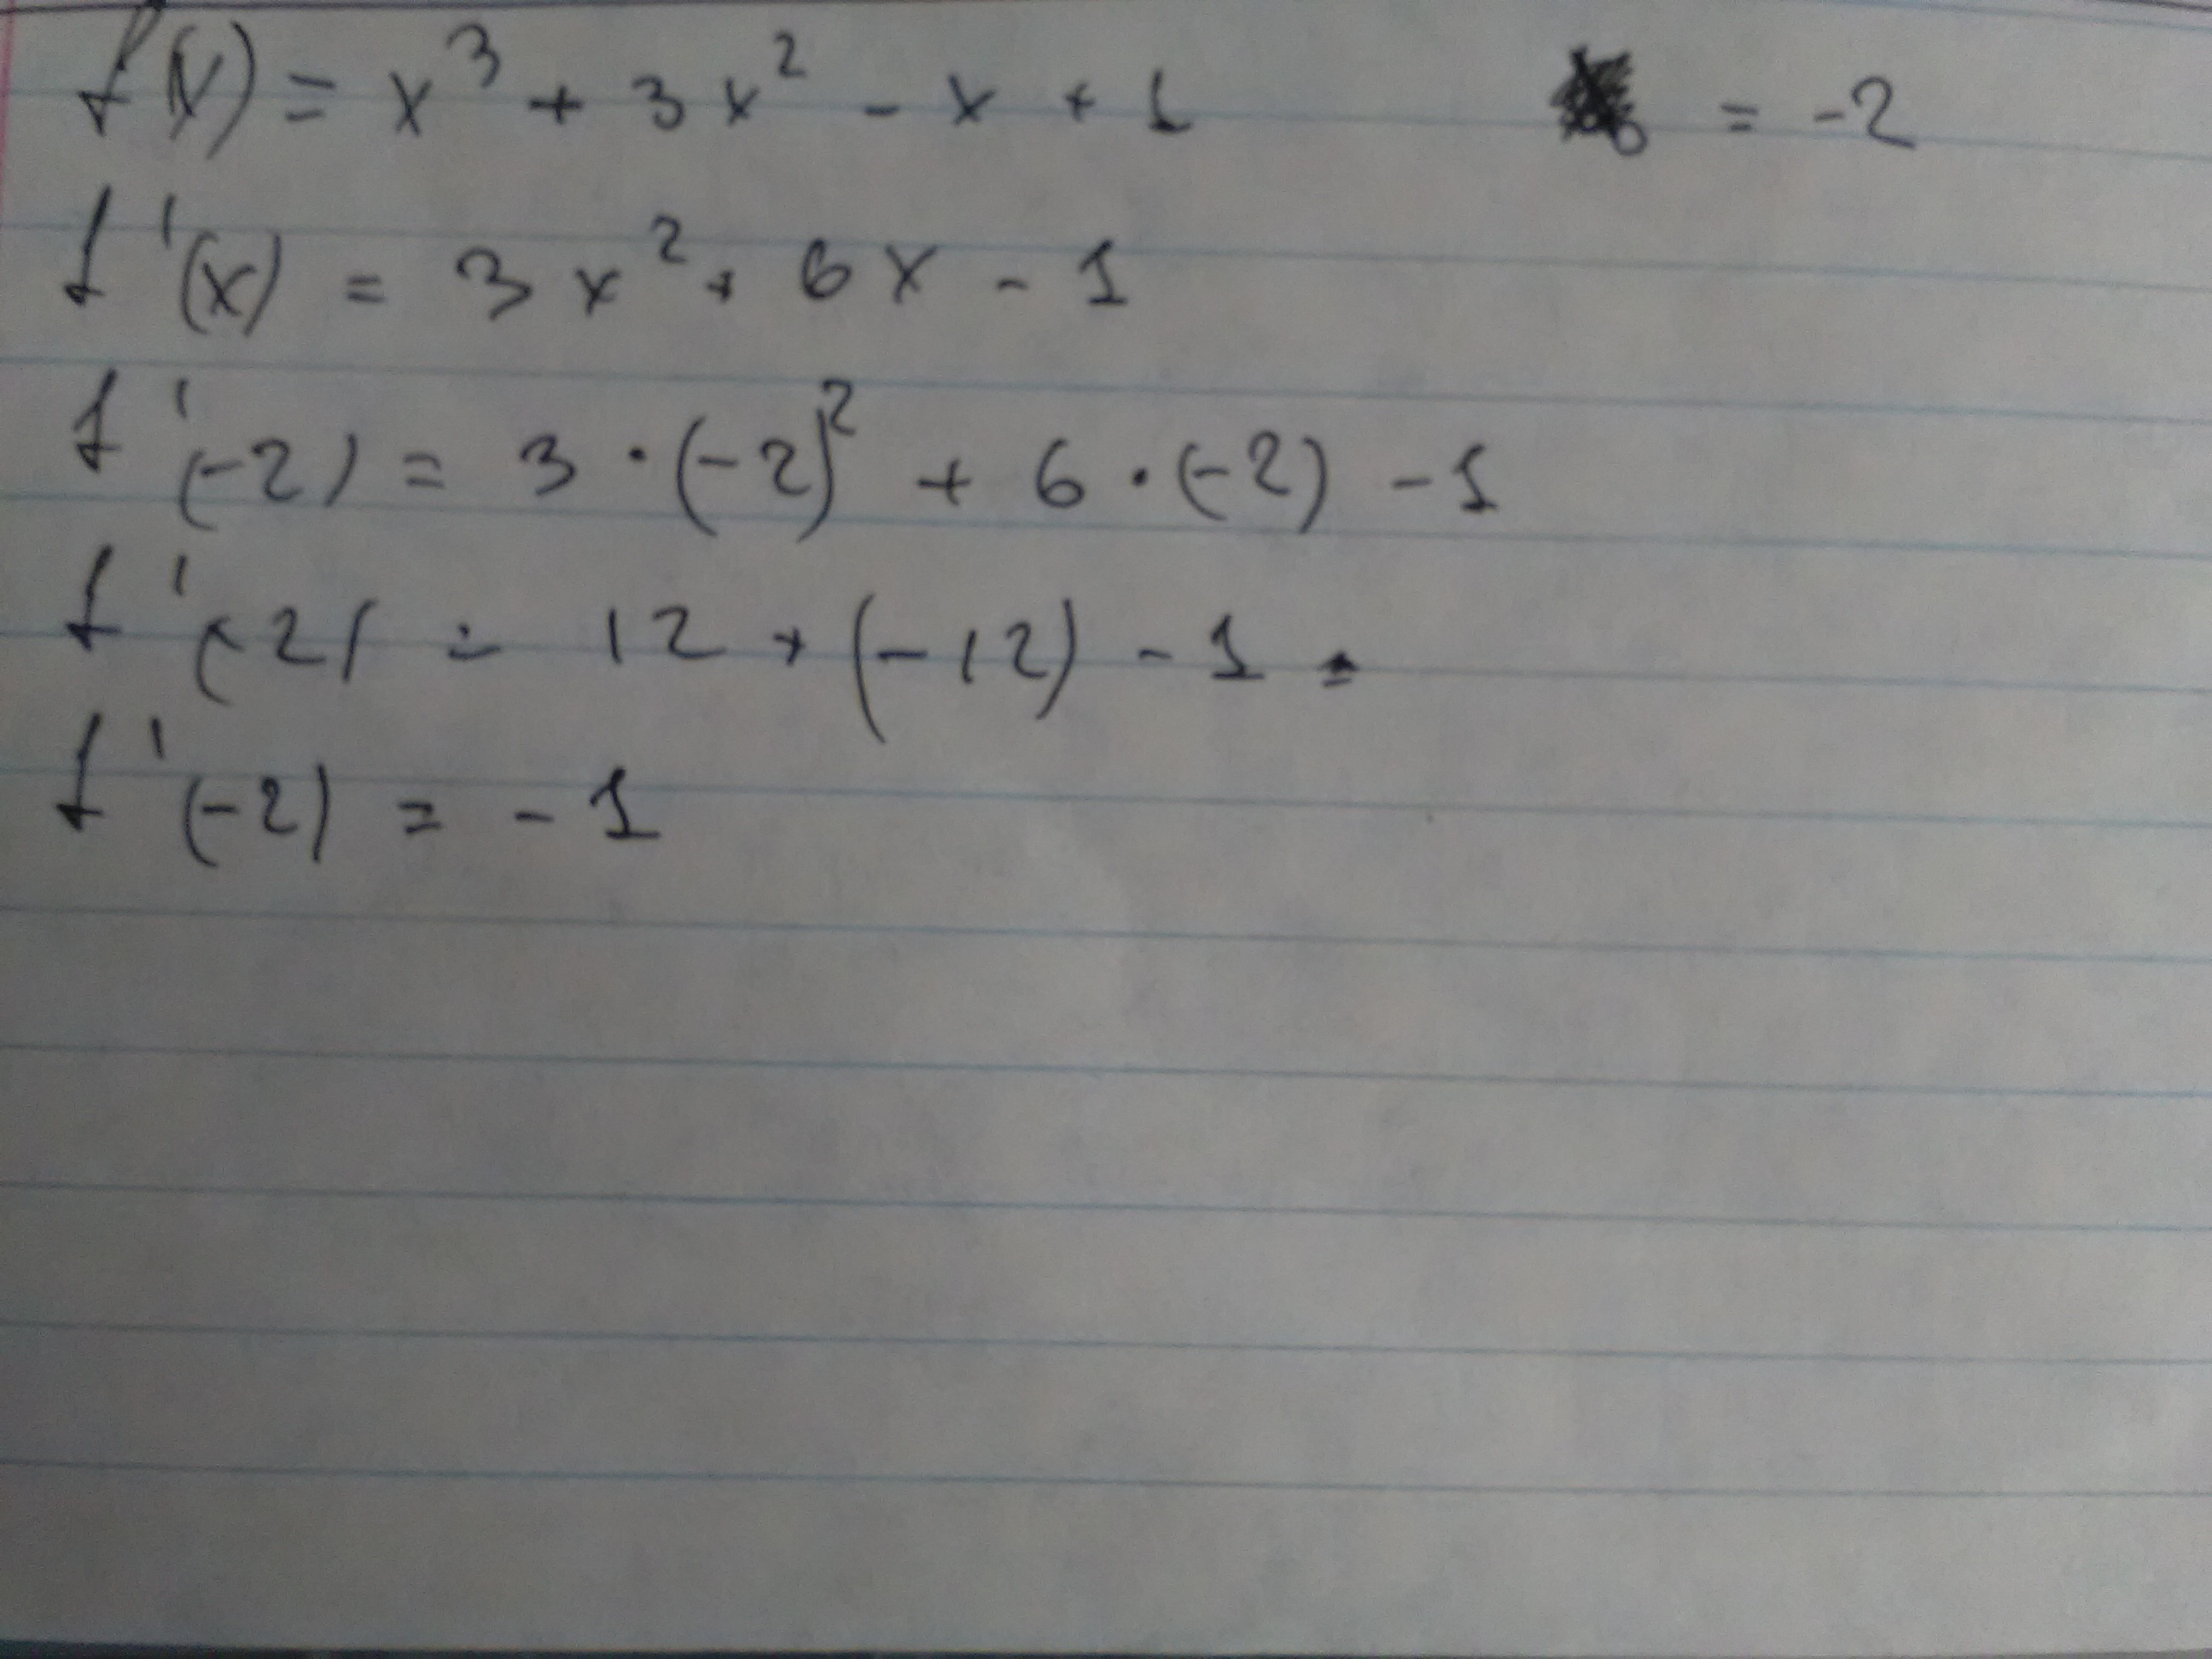 f(x) = x³ + 3x² - x + 1 = -2
f'(x) = 3x² + 6x - 1
f'(-2) = 3 · (-2)² + 6 · (-2) - 1
f'(-2) = 12 + (-12) - 1 =
f'(-2) = - 1